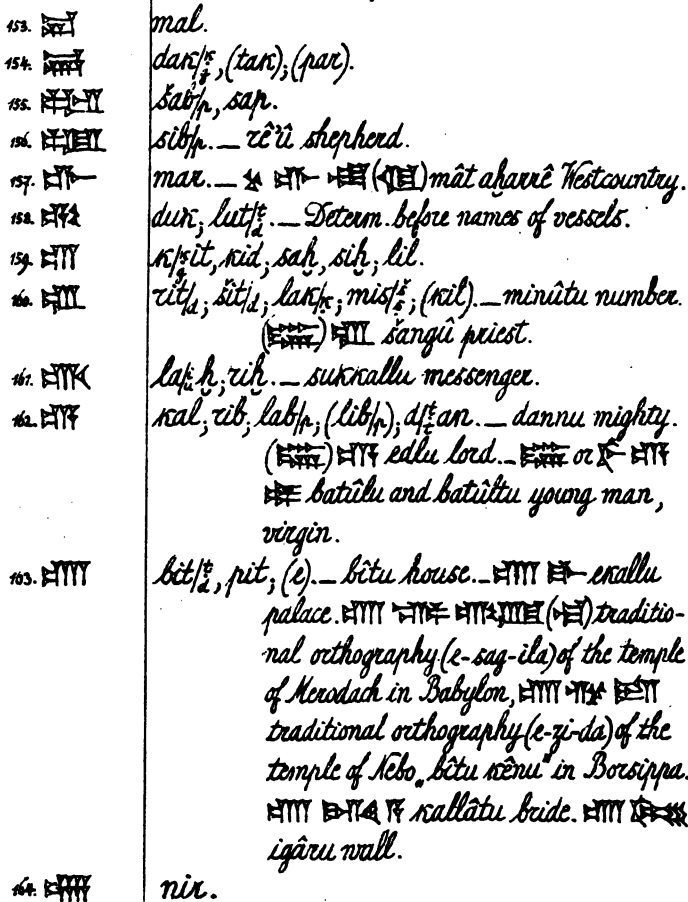 153. 𒂷 mal.
154. 𒁖 dak/ḳ/g, (tak); (par).
155. 𒉺𒅁 šab/p, sap.
156. 𒉺𒇻 sib/p. — rê'û shepherd.
157. 𒈥 mar. — 𒆳 𒈥 𒌅 (𒆠) mât aḫarrê Westcountry.
158. 𒂁 duk; lut/ṭ/d. — Determ. before names of vessels.
159. 𒆤 k/ḳ/g it, kid; saḫ, siḫ; lil.
160. 𒋃 rit/d; šit/d; lak/ḳ; mis/š/ṣ; (kil). — minûtu number.
(𒇽) 𒋃 šangû priest.
161. 𒈛 la/i/u ḫ; riḫ. — sukkallu messenger.
162. 𒆗 kal; rib; lab/p; (lib/p); d/t/ṭ an. — dannu mighty.
(𒇽) 𒆗 edlu lord. — 𒇽 or 𒊩 𒆗
𒌉 batûlu and batûltu young man,
virgin.
163. 𒂍 bit/ṭ/d, pit; (e). — bîtu house. — 𒂍 𒃲 ekallu
palace. 𒂍 𒊕 traditio-
nal orthography (e-sag-ila) of the temple
of Merodach in Babylon, 𒂍 𒍣 𒁕
traditional orthography (e-zi-da) of the
temple of Nebo „bîtu kênu" in Borsippa.
𒂍 𒄄 𒀀 kallâtu bride. 𒂍 𒋞
igâru wall.
164. nir.